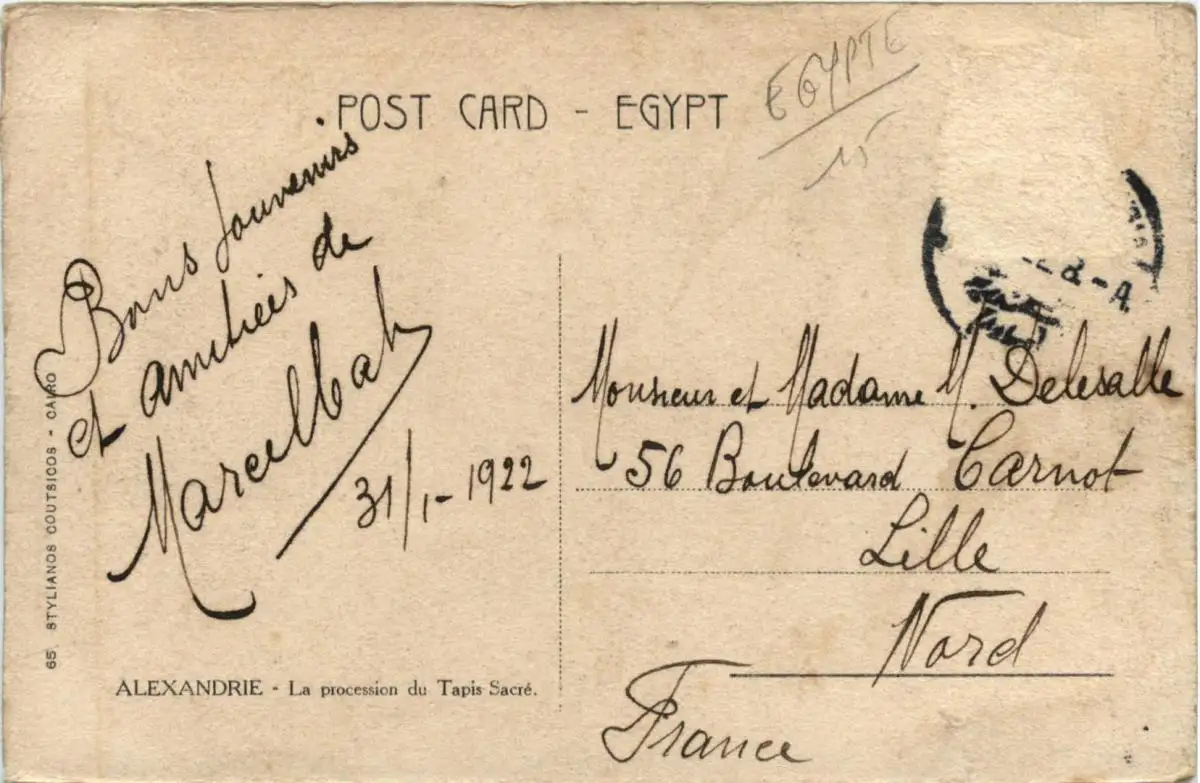 POST CARD - EGYPT
EGYPTE
15
Bons souvenirs
et amitiés de
Marcelbat
31/1-1922
Monsieur et Madame M. Delesalle
56 Boulevard Carnot
Lille
Nord
France
65. STYLIANOS COUTSICOS - CAIRO
ALEXANDRIE - La procession du Tapis Sacré.